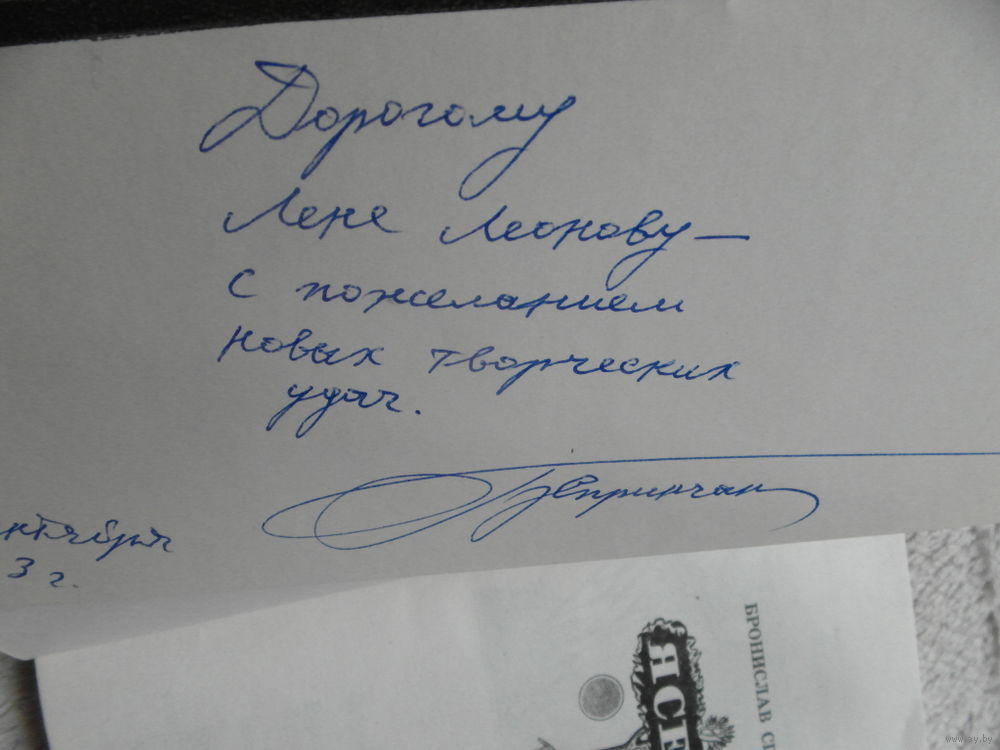 Дорогому
Лене Леонову —
с пожеланием
новых творческих
удач.
нтября
3 г.
БРОНИСЛАВ СП
ЯСЕ
www.ay.by